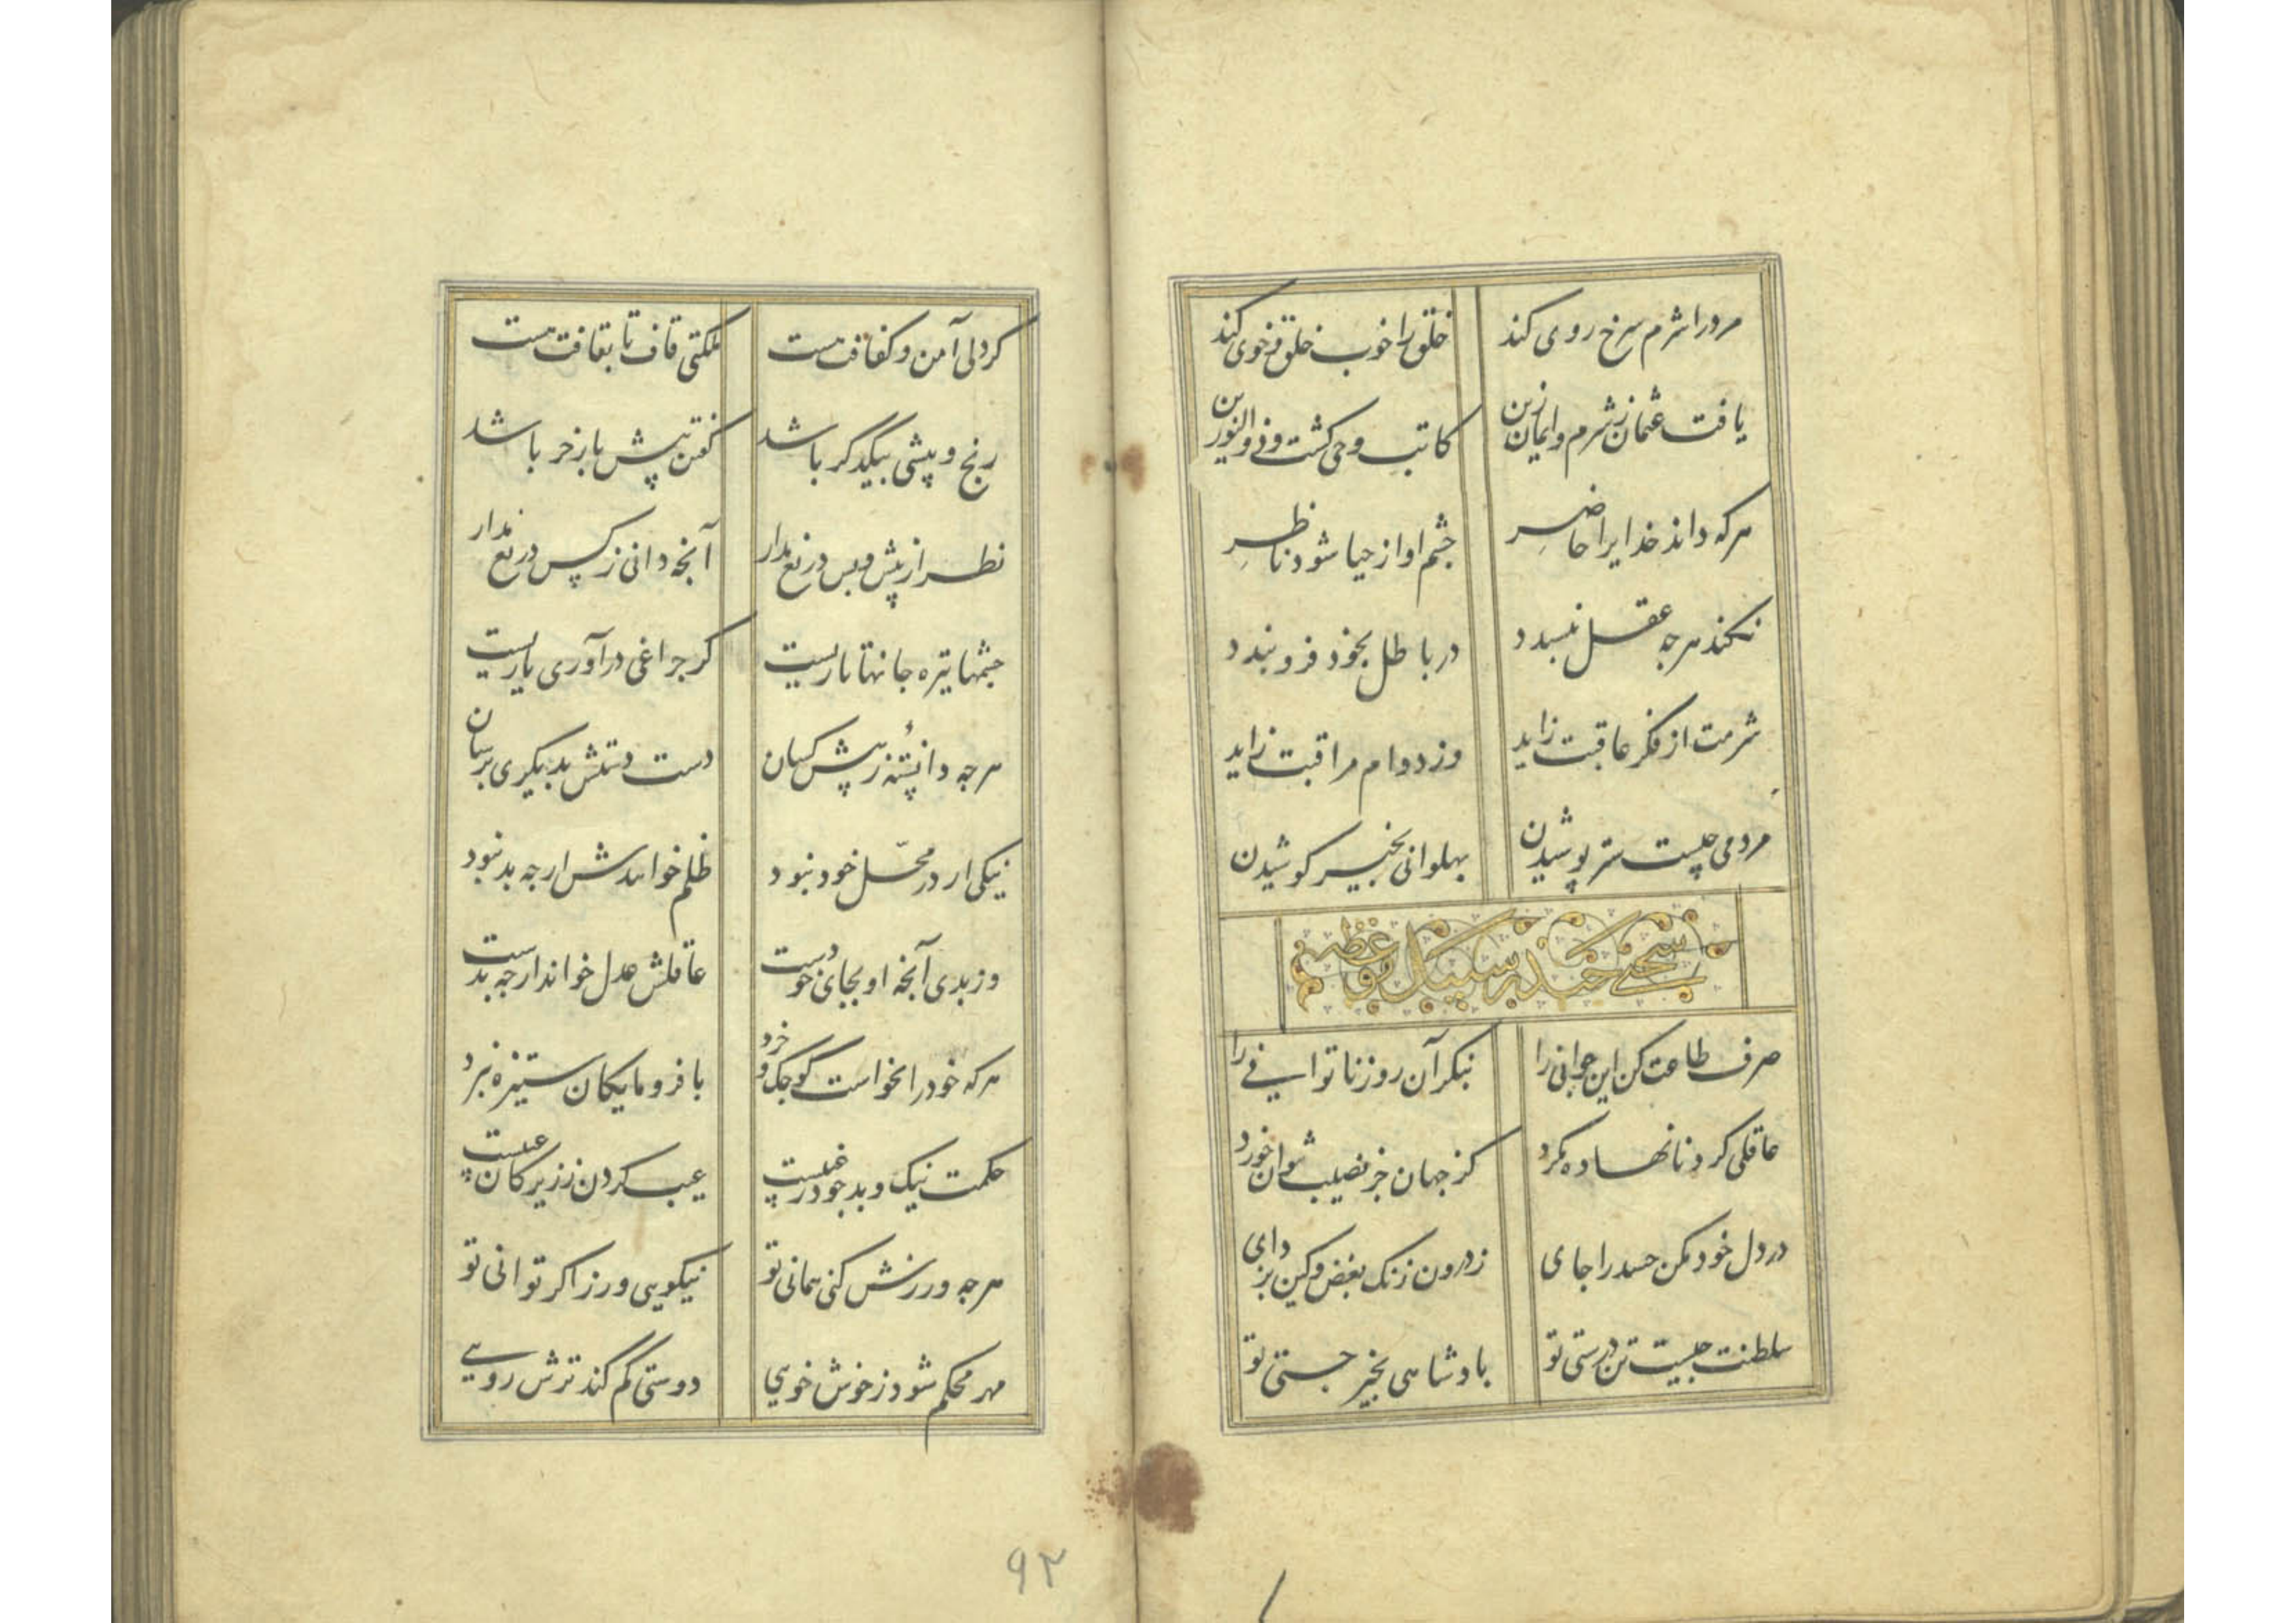 مرد را شرم سرخ روی کند
خلق را خوب خلق و خوی کند
یافت عثمان ز شرم و ایمان زین
کاتب وحی گشت و ذو النورین
هر که داند خدایرا حاضر
چشم او از حیا شود ناظر
نکند هر چه عقل نپسندد
در باطل بخود فرو بندد
شرمت از فکر عاقبت زاید
وز دوام مراقبت زاید
مردمی چیست ستر پوشیدن
پهلوانی بخیر کوشیدن
سخنی چند بر سبیل موعظه
صرف طاعت کن این جوانی را
بنگر آن روز ناتوانی را
عاقلی گرد نانهاده مگرد
کز جهان جز نصیب نتوان خورد
در دل خود مکن حسد را جای
ز درون زنگ بغض و کین بزدای
سلطنت چیست تن درستی تو
پادشاهی بخیر جستی تو
گر دلی آمن و کفافت هست
ملکتی قاف تا بقافت هست
رنج و پیشی بیکدگر باشد
گفتن پیش با زخر باشد
نظر از پیش و پس دریغ مدار
آنچه دانی ز کس دریغ مدار
چشمها تیره جانها تاریست
گر چراغی درآوری یاریست
هر چه دانسته ز پیش کسان
دست دستش بدیگری برسان
نیکی ار در محل خود نبود
ظلم خوانندش ار چه بد نبود
وز بدی آنچه او بجای خودست
عاقلش عدل خواند ار چه بدست
هر که خود را نخواست کوچک و خرد
با فرومایگان ستیزه نبرد
حکمت نیک و بد چو در غیبست
عیب کردن ز زیرکان عیبست
هر چه ورزش کنی همانی تو
نیکویی ورز اگر توانی تو
مهر محکم شود ز خوش خویی
دوستی کم کند ترش رویی
۹۲